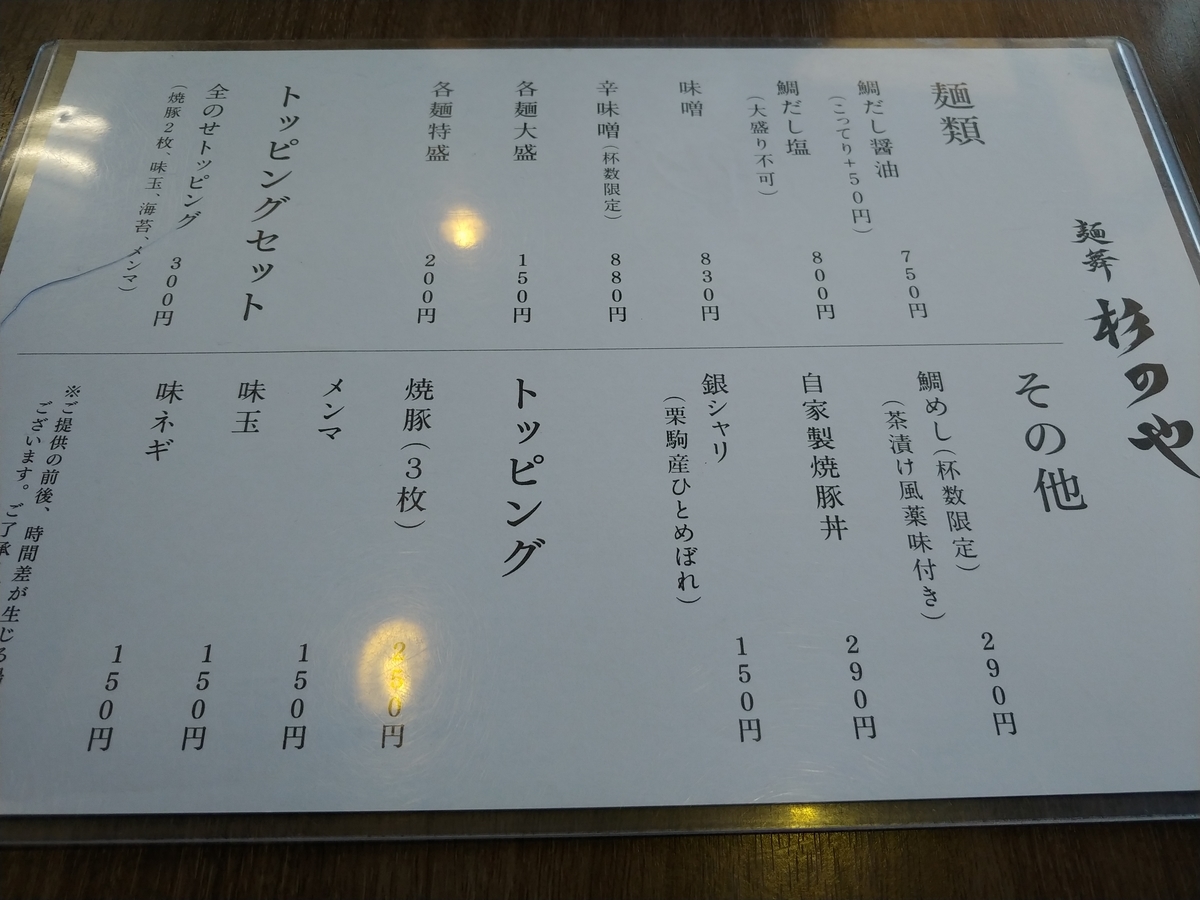 麺舞 杉のや
麺類
鯛だし醤油 750円
（こってり+50円）
鯛だし塩 800円
（大盛り不可）
味噌 830円
辛味噌（杯数限定） 880円
各麺大盛 150円
各麺特盛 200円
トッピングセット
全のせトッピング 300円
（焼豚2枚、味玉、海苔、メンマ）
その他
鯛めし（杯数限定） 290円
（茶漬け風薬味付き）
自家製焼豚丼 290円
銀シャリ 150円
（栗駒産ひとめぼれ）
トッピング
焼豚（3枚） 250円
メンマ 150円
味玉 150円
味ネギ 150円
※ご提供の前後、時間差が生じる
ございます。ご了承